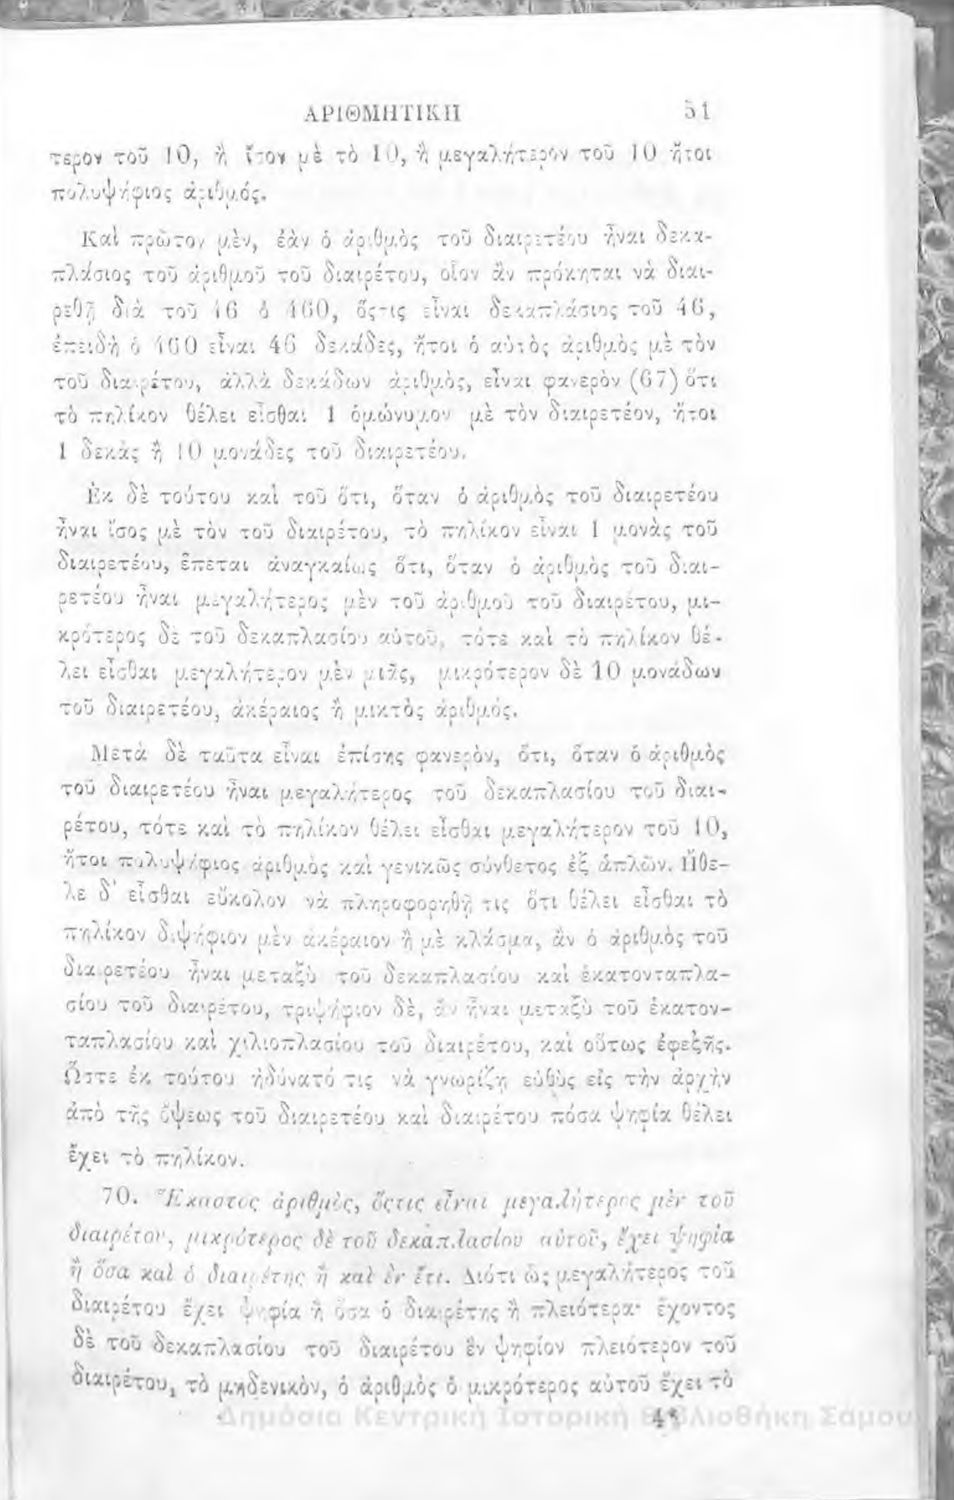 ΑΡΙΘΜΗΤΙΚΗ 51
τερον τοῦ 10, ἢ ἴσον μὲ τὸ 10, ἢ μεγαλήτερον τοῦ 10 ἤτοι
πολυψήφιος ἀριθμός.
Καὶ πρῶτον μὲν, ἐὰν ὁ ἀριθμὸς τοῦ διαιρετέου ἦναι δεκα-
πλάσιος τοῦ ἀριθμοῦ τοῦ διαιρέτου, οἷον ἂν πρόκηται νὰ διαι-
ρεθῇ διὰ τοῦ 46 ὁ 460, ὅςτις εἶναι δεκαπλάσιος τοῦ 46,
ἐπειδὴ ὁ 460 εἶναι 46 δεκάδες, ἤτοι ὁ αὐτὸς ἀριθμὸς μὲ τὸν
τοῦ διαιρέτου, ἀλλὰ δεκάδων ἀριθμὸς, εἶναι φανερὸν (67) ὅτι
τὸ πηλίκον θέλει εἶσθαι 1 ὁμώνυμον μὲ τὸν διαιρετέον, ἤτοι
1 δεκὰς ἢ 10 μονάδες τοῦ διαιρετέου.
Ἐκ δὲ τούτου καὶ τοῦ ὅτι, ὅταν ὁ ἀριθμὸς τοῦ διαιρετέου
ἦναι ἴσος μὲ τὸν τοῦ διαιρέτου, τὸ πηλίκον εἶναι 1 μονὰς τοῦ
διαιρετέου, ἕπεται ἀναγκαίως ὅτι, ὅταν ὁ ἀριθμὸς τοῦ διαι-
ρετέου ἦναι μεγαλήτερος μὲν τοῦ ἀριθμοῦ τοῦ διαιρέτου, μι-
κρότερος δὲ τοῦ δεκαπλασίου αὐτοῦ, τότε καὶ τὸ πηλίκον θέ-
λει εἶσθαι μεγαλήτερον μὲν μιᾶς, μικρότερον δὲ 10 μονάδων
τοῦ διαιρετέου, ἀκέραιος ἢ μικτὸς ἀριθμός.
Μετὰ δὲ ταῦτα εἶναι ἐπίσης φανερὸν, ὅτι, ὅταν ὁ ἀριθμὸς
τοῦ διαιρετέου ἦναι μεγαλήτερος τοῦ δεκαπλασίου τοῦ διαι-
ρέτου, τότε καὶ τὸ πηλίκον θέλει εἶσθαι μεγαλήτερον τοῦ 10,
ἤτοι πολυψήφιος ἀριθμὸς καὶ γενικῶς σύνθετος ἐξ ἁπλῶν. Ἤθε-
λε δ' εἶσθαι εὔκολον νὰ πληροφορηθῇ τις ὅτι θέλει εἶσθαι τὸ
πηλίκον διψήφιον μὲν ἀκέραιον ἢ μὲ κλάσμα, ἂν ὁ ἀριθμὸς τοῦ
διαιρετέου ἦναι μεταξὺ τοῦ δεκαπλασίου καὶ ἑκατονταπλα-
σίου τοῦ διαιρέτου, τριψήφιον δὲ, ἂν ἦναι μεταξὺ τοῦ ἑκατον-
ταπλασίου καὶ χιλιοπλασίου τοῦ διαιρέτου, καὶ οὕτως ἐφεξῆς.
Ὥστε ἐκ τούτου ἠδύνατό τις νὰ γνωρίζῃ εὐθὺς εἰς τὴν ἀρχὴν
ἀπὸ τῆς ὄψεως τοῦ διαιρετέου καὶ διαιρέτου πόσα ψηφία θέλει
ἔχει τὸ πηλίκον.
70. Ἕκαστος ἀριθμὸς, ὅςτις εἶναι μεγαλήτερος μὲν τοῦ
διαιρέτου, μικρότερος δὲ τοῦ δεκαπλασίου αὐτοῦ, ἔχει ψηφία
ἢ ὅσα καὶ ὁ διαιρέτης ἢ καὶ ἓν ἔτι. Διότι ὡς μεγαλήτερος τοῦ
διαιρέτου ἔχει ψηφία ἢ ὅσα ὁ διαιρέτης ἢ πλειότερα· ἔχοντος
δὲ τοῦ δεκαπλασίου τοῦ διαιρέτου ἓν ψηφίον πλειότερον τοῦ
διαιρέτου, τὸ μηδενικὸν, ὁ ἀριθμὸς ὁ μικρότερος αὐτοῦ ἔχει τὸ
4*
Δημόσια Κεντρική Ιστορική Βιβλιοθήκη Σάμου